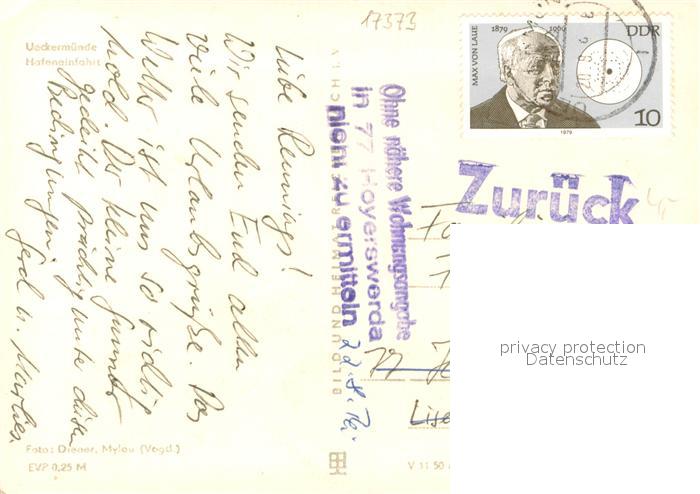 17373
Ueckermünde
Hafeneinfahrt
Liebe Rennings!
Wir senden Euch allen
viele Urlaubsgrüße. Das
Wetter ist uns so richtig
hold. Der kleine
gedeiht prächtig unter diesen
Bedingungen.
Gerd u. Marlies
Foto: Diener, Mylau (Vogtl.)
EVP 0,25 M
BILD UND HEIMAT REICHENBACH I. V.
V 11 50
Ohne nähere Wohnungsangabe
in 77 Hoyerswerda
nicht zu ermitteln
Zurück
MAX VON LAUE
1879 1960
DDR
10
1979
privacy protection
Datenschutz